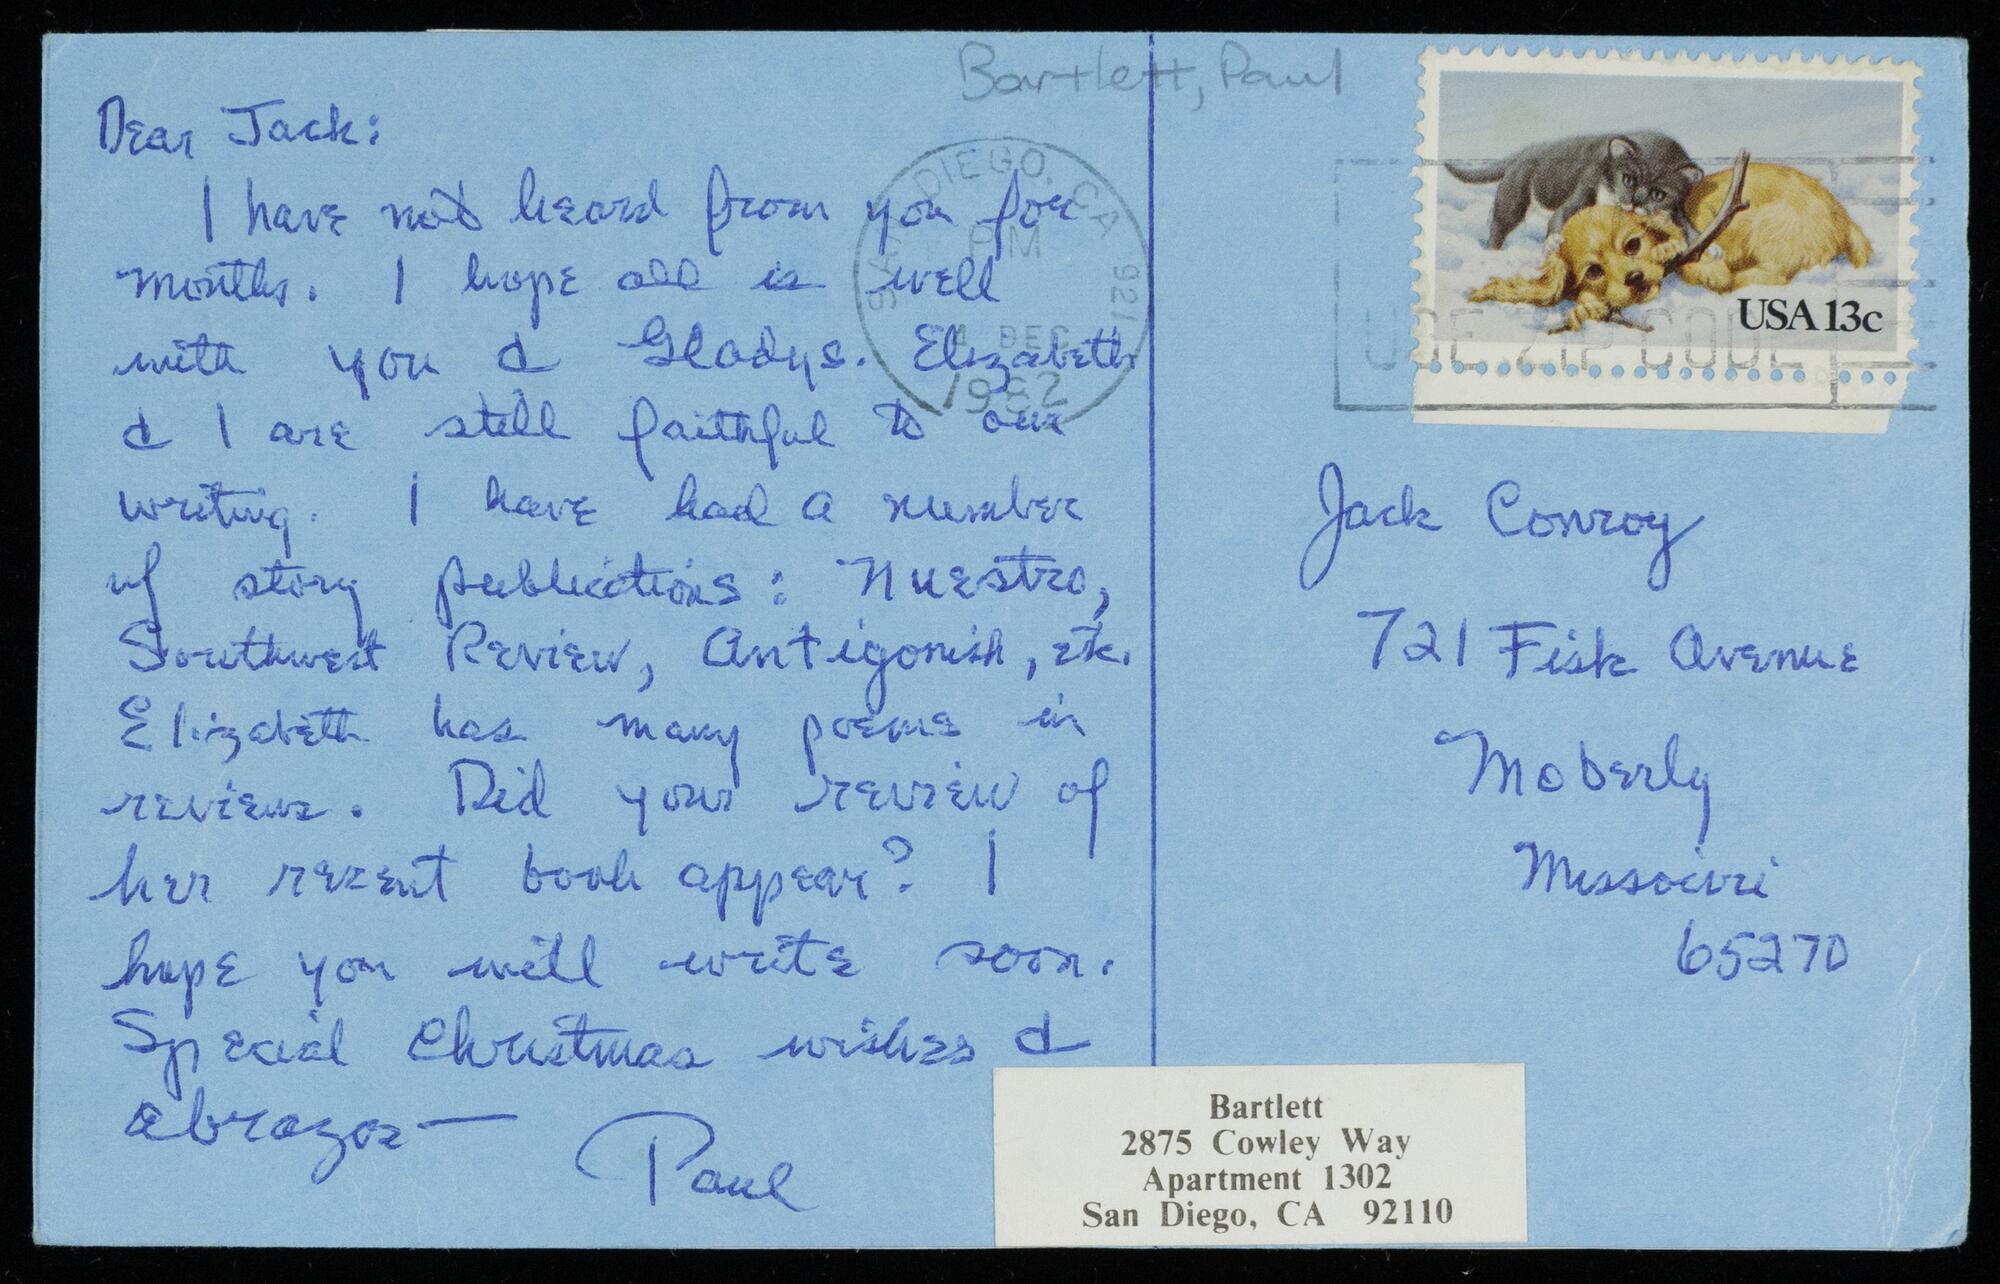 Bartlett, Paul
Dear Jack:
I have not heard from you for
months. I hope all is well
with you & Gladys. Elizabeth
& I are still faithful to our
writing. I have had a number
of story publications: Nuestro,
Southwest Review, Antigonish, etc.
Elizabeth has many poems in
reviews. Did your review of
her recent book appear? I
hope you will write soon.
Special Christmas wishes &
abrazos—
Paul
SAN DIEGO, CA 921
PM
DEC
1982
USA 13c
USE ZIP CODE
Jack Conroy
721 Fisk Avenue
Moberly
Missouri
65270
Bartlett
2875 Cowley Way
Apartment 1302
San Diego, CA 92110